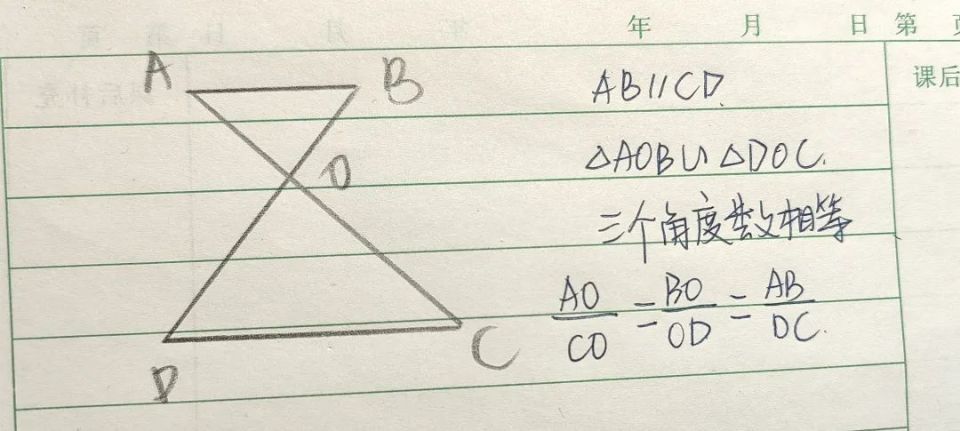 年 月 日 第 页
课后
A B
AB∥CD.
△AOB∽△DOC.
O
三个角度数相等
AO/CO = BO/OD = AB/DC.
D C